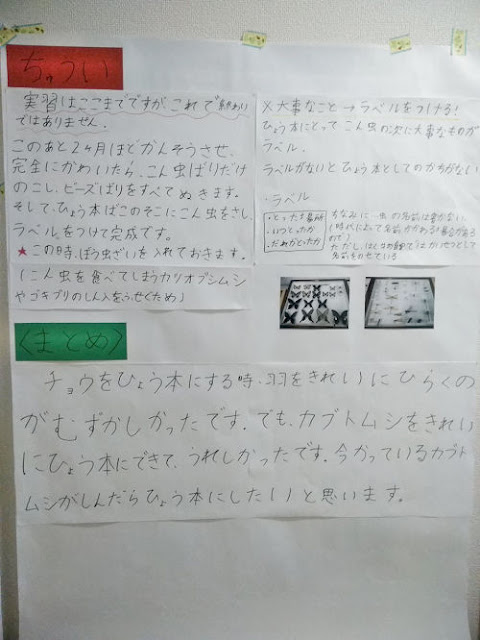 ちゅうい
実習はここまでですが、これで終わり
ではありません。
このあと2ヶ月ほどかんそうさせ、
完全にかわいたら、こん虫ばりだけ
のこし、ビーズばりをすべてぬきます。
そして、ひょう本ばこのそこにこん虫をさし、
ラベルをつけて完成です。
★この時、ぼう虫ざいを入れておきます。
(こん虫を食べてしまうカツオブシムシ
やゴキブリのしん入をふせぐため)
※大事なこと→ラベルをつける!
ひょう本にとってこん虫の次に大事なものが
ラベル。
ラベルがないとひょう本としてのかちがない
・ラベル
・とった場所
・いつとったか
・だれがとったか
ちなみに…虫の名前は書かない。
(時代によって名前がかわる場合がある
ので)
名前をのせている
〈まとめ〉
チョウをひょう本にする時、羽をきれいにひらくの
がむずかしかったです。でも、カブトムシをきれい
にひょう本にできて、うれしかったです。今かっているカブト
ムシがしんだらひょう本にしたいと思います。